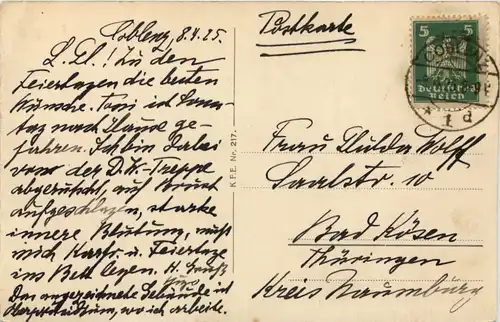 Coblenz, 8.4.25.
L. El.! Zu den
Feiertagen die besten
Wünsche. Toni ist Sonn-
tag nach Hause ge-
fahren. Ich bin dabei
von der D.K.-Treppe
abgerutscht, auf Brust
aufgeschlagen, starke
innere Blutung, muß
mich Karfr. u. Feiertage
ins Bett legen. H. Gruß
Das angezeichnete Gebäude ist
Oberpräsidium, wo ich arbeite.
K.F.E. Nr. 217.
Postkarte
5 5
Deutsches
Reich
COBLENZ
* 1 d
Frau Hulda Wolff
Saalstr. 10
Bad Kösen
Thüringen
Kreis Naumburg